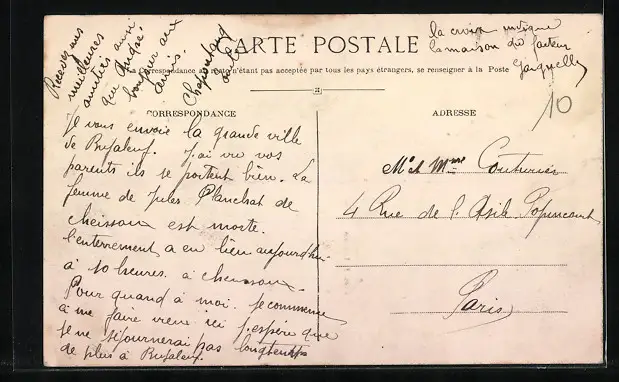 Recevez mes
meilleures
amitiés ainsi
que André.
bonjour aux
amis.
la croix indique
la maison du facteur
CARTE POSTALE
La Correspondance au recto n'étant pas acceptée par tous les pays étrangers, se renseigner à la Poste
10
CORRESPONDANCE
Je vous envoie la grande ville
de Bujaleuf. J'ai vu vos
parents ils se portent bien. La
femme de Jules Planchat de
Cheissoux est morte.
l'enterrement a eu lieu aujourd'hui
à 10 heures. à Cheissoux.
Pour quand à moi. Je commence
à me faire vieux ici j'espère que
je ne séjournerai pas longtemps
de plus à Bujaleuf.
ADRESSE
Mr et Mme Couturier
4 Rue de l'Asile Popincourt
Paris